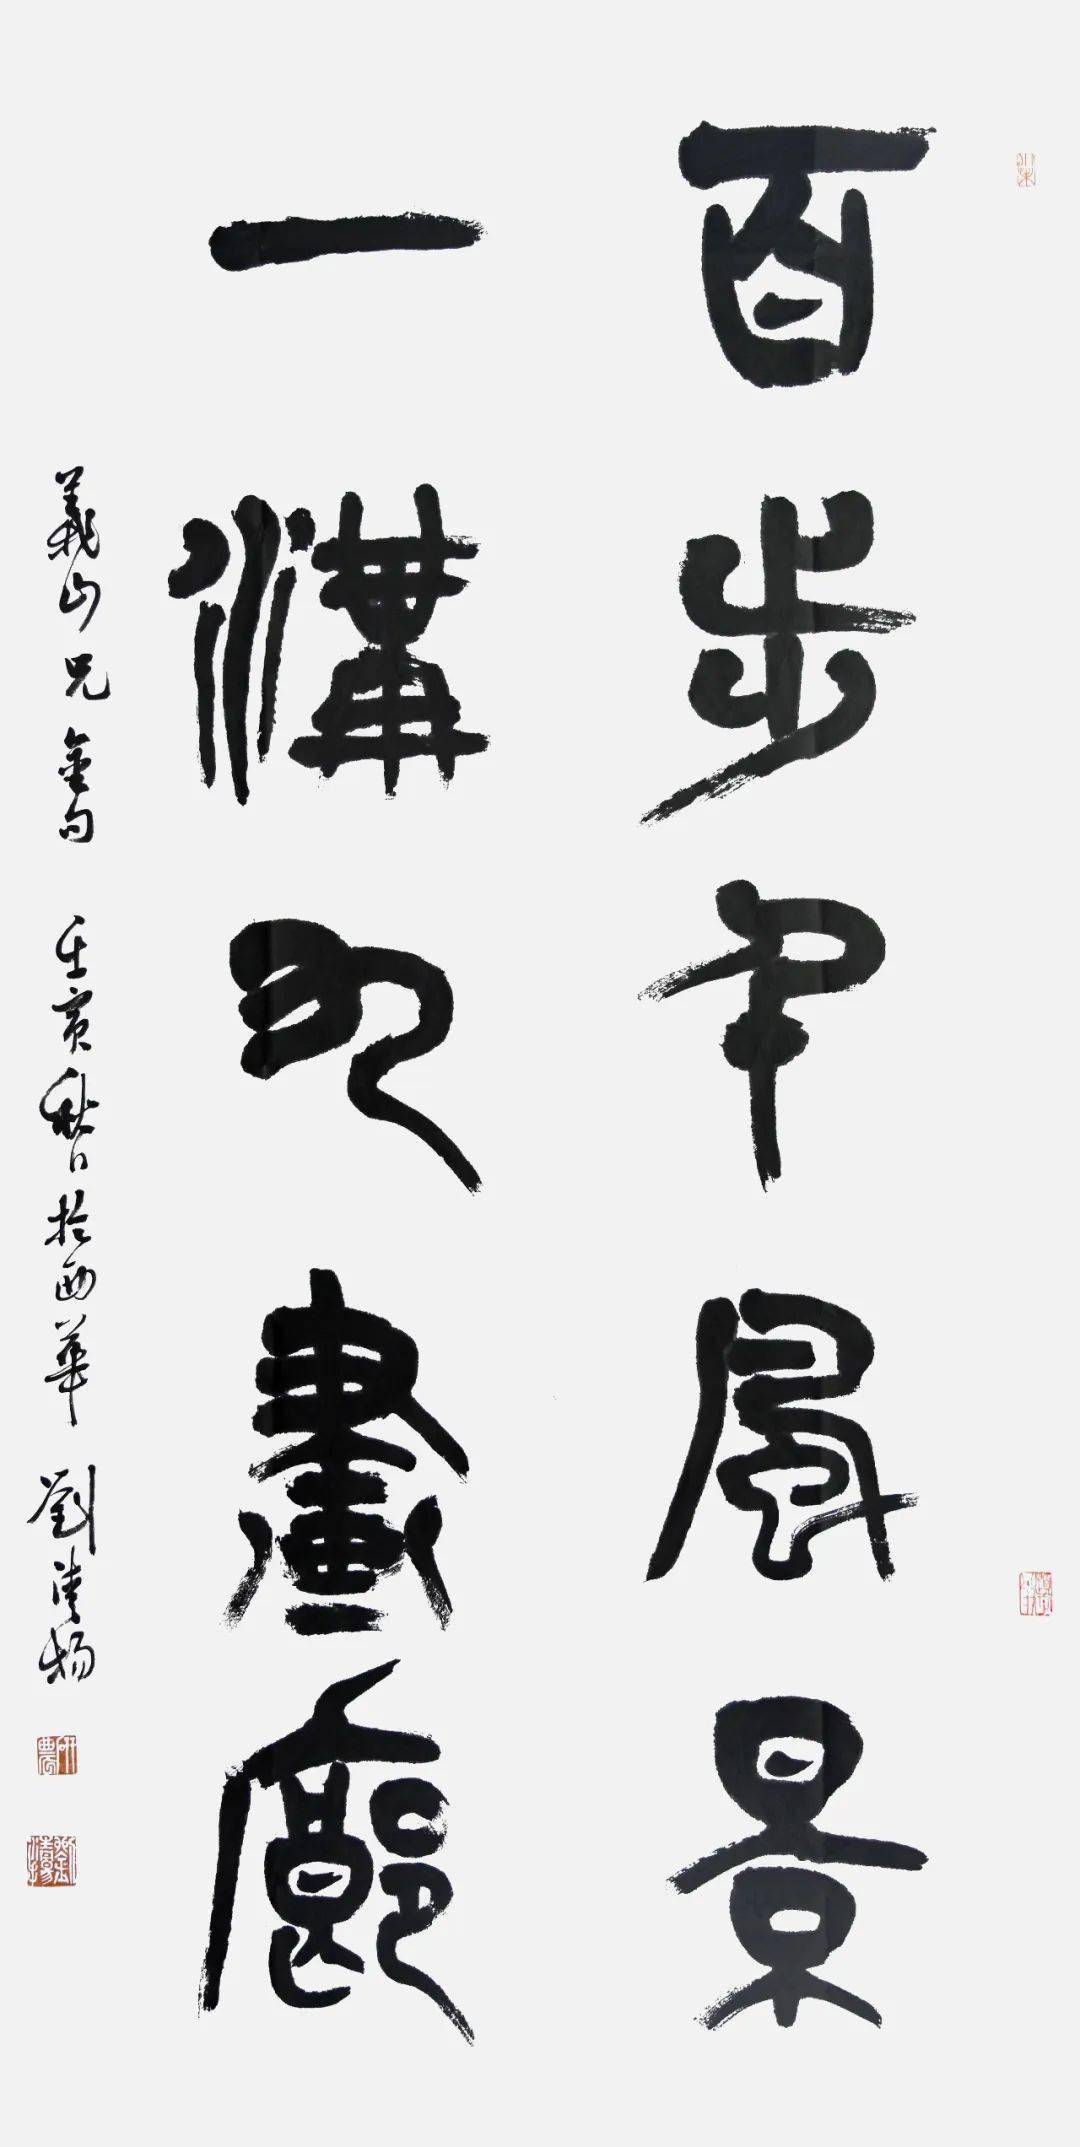 百步千風景
一溝九畫廊
義山兄金句 壬寅秋日於西華 劉清揚
研農